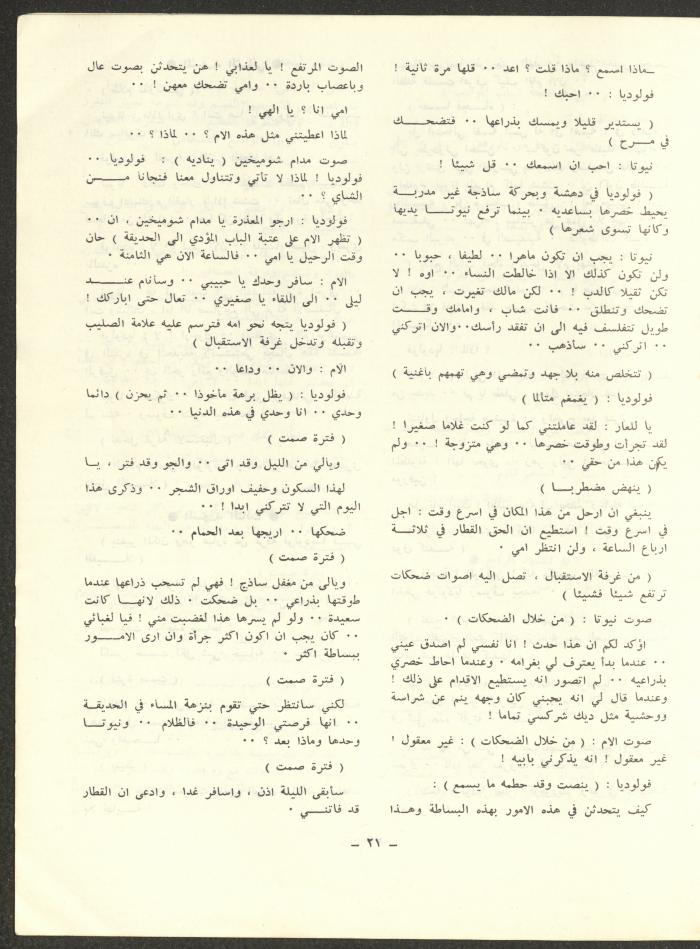 ـماذا اسمع ؟ ماذا قلت ؟ اعد ٠٠ قلها مرة ثانية !
فولوديا : ٠٠ احبك !
( يستدير قليلا ويمسك بذراعها ٠٠ فتضحـــــك
في مـــرح )
نيوتا : احب ان اسمعك ٠٠ قل شيئا !
( فولوديا في دهشة وبحركة ساذجة غير مدربـــة
يحيط خصرها بساعديه ٠ بينما ترفع نيوتـــــا يديها
وكانها تسوى شعرها )
نيوتا : يجب ان تكون ماهرا ٠٠ لطيفا ، حبوبا ٠٠
ولن تكون كذلك الا اذا خالطت النساء ٠٠ اوه ! لا
تكن ثقيلا كالدب ! ٠٠ لكن مالك تغيرت ، يجب ان
تضحك وتنطلق ٠٠ فانت شاب ، وامامك وقـــــت
طويل تتفلسف فيه الى ان تفقد رأسك٠٠والان اتركني
٠٠ اتركني ٠٠ سأذهب ٠٠
( تتخلص منه بلا جهد وتمضي وهي تهمهم باغنية )
فولوديا : ( يغمغم متالما )
يا للعار : لقد عاملتني كما لو كنت غلاما صغيرا !
لقد تجرأت وطوقت خصرها ٠٠ وهي متزوجة ! ٠٠ ولم
يكن هذا من حقي ٠٠
( ينهض مضطربـــا )
ينبغي ان ارحل من هذا المكان في اسرع وقت : اجل
في اسرع وقت ! استطيع ان الحق القطار في ثلاثـــة
ارباع الساعة ، ولن انتظر امي ٠
( من غرفة الاستقبال ، تصل اليه اصوات ضحكات
ترتفع شيئا فشيئا )
صوت نيوتا : ( من خلال الضحكات ) ٠
اؤكد لكم ان هذا حدث ! انا نفسي لم اصدق عيني
٠٠ عندما بدأ يعترف لي بغرامه ٠ وعندما احاط خصري
بذراعيه ٠٠ لم اتصور انه يستطيع الاقدام على ذلك !
وعندما قال لي انه يحبني كان وجهه ينم عن شراسة
ووحشية مثل ديك شركسي تماما !
صوت الام : ( من خلال الضحكات ) : غير معقول !
غير معقول ! انه يذكرني بابيه !
فولوديا : ( ينصت وقد حطمه ما يسمع ) :
كيف يتحدثن في هذه الامور بهذه البساطة وهـــذا
الصوت المرتفع ! يا لعذابي ! هن يتحدثن بصوت عال
وباعصاب باردة ٠٠ وامي تضحك معهن ! ٠٠
امي انا ؟ يا الهي !
لماذا اعطيتني مثل هذه الام ؟ ٠٠ لماذا ؟ ٠٠
صوت مدام شوميخين ( يناديه ) : فولوديا ٠٠
فولوديا ! لماذا لا تأتي وتتناول معنا فنجانا مـــــن
الشاي ؟ ٠٠
فولوديا : ارجو المعذرة يا مدام شوميخين ، ان ٠٠
( تظهر الام على عتبة الباب المؤدي الى الحديقة ) حان
وقت الرحيل يا امي ٠٠ فالساعة الان هي الثامنة ٠
الام : سافر وحدك يا حبيبي ٠٠ وسأنام عنـــــد
ليلى ٠٠ الى اللقاء يا صغيري ٠٠ تعال حتى اباركك !
( فولوديا يتجه نحو امه فترسم عليه علامة الصليب
وتقبله وتدخل غرفة الاستقبال )
الام : والان ٠٠ وداعا ٠٠
فولوديا : ( يظل برهة مأخوذا ٠٠ ثم يحزن ) دائما
وحدي ٠٠ انا وحدي في هذه الدنيا ٠٠
( فترة صمت )
ويالي من الليل وقد اتى ٠٠ والجو وقد فتر ، يــا
لهذا السكون وحفيف اوراق الشجر ٠٠ وذكرى هذا
اليوم التي لا تتركني ابدا ! ٠٠
ضحكها ٠٠ اريجها بعد الحمام ٠٠
( فترة صمت )
ويالى من مغفل ساذج ! فهي لم تسحب ذراعها عندما
طوقتها بذراعي ٠٠ بل ضحكت ٠ ذلك لانهــا كانت
سعيدة ٠٠ ولو لم يسرها هذا لغضبت مني ! فيا لغبائي
٠٠ كان يجب ان اكون اكثر جرأة وان ارى الامـــور
ببساطة اكثر ٠
( فترة صمت )
لكني سانتظر حتي تقوم بنزهة المساء في الحديقـة
٠٠ انها فرصتي الوحيدة ٠٠ فالظلام ٠٠ ونيوتـــا
وحدها وماذا بعد ؟ ٠٠
( فترة صمت )
سأبقى الليلة اذن ، واسافر غدا ، وادعى ان القطار
قد فاتنـــي ٠
ــ ٢١ ــ